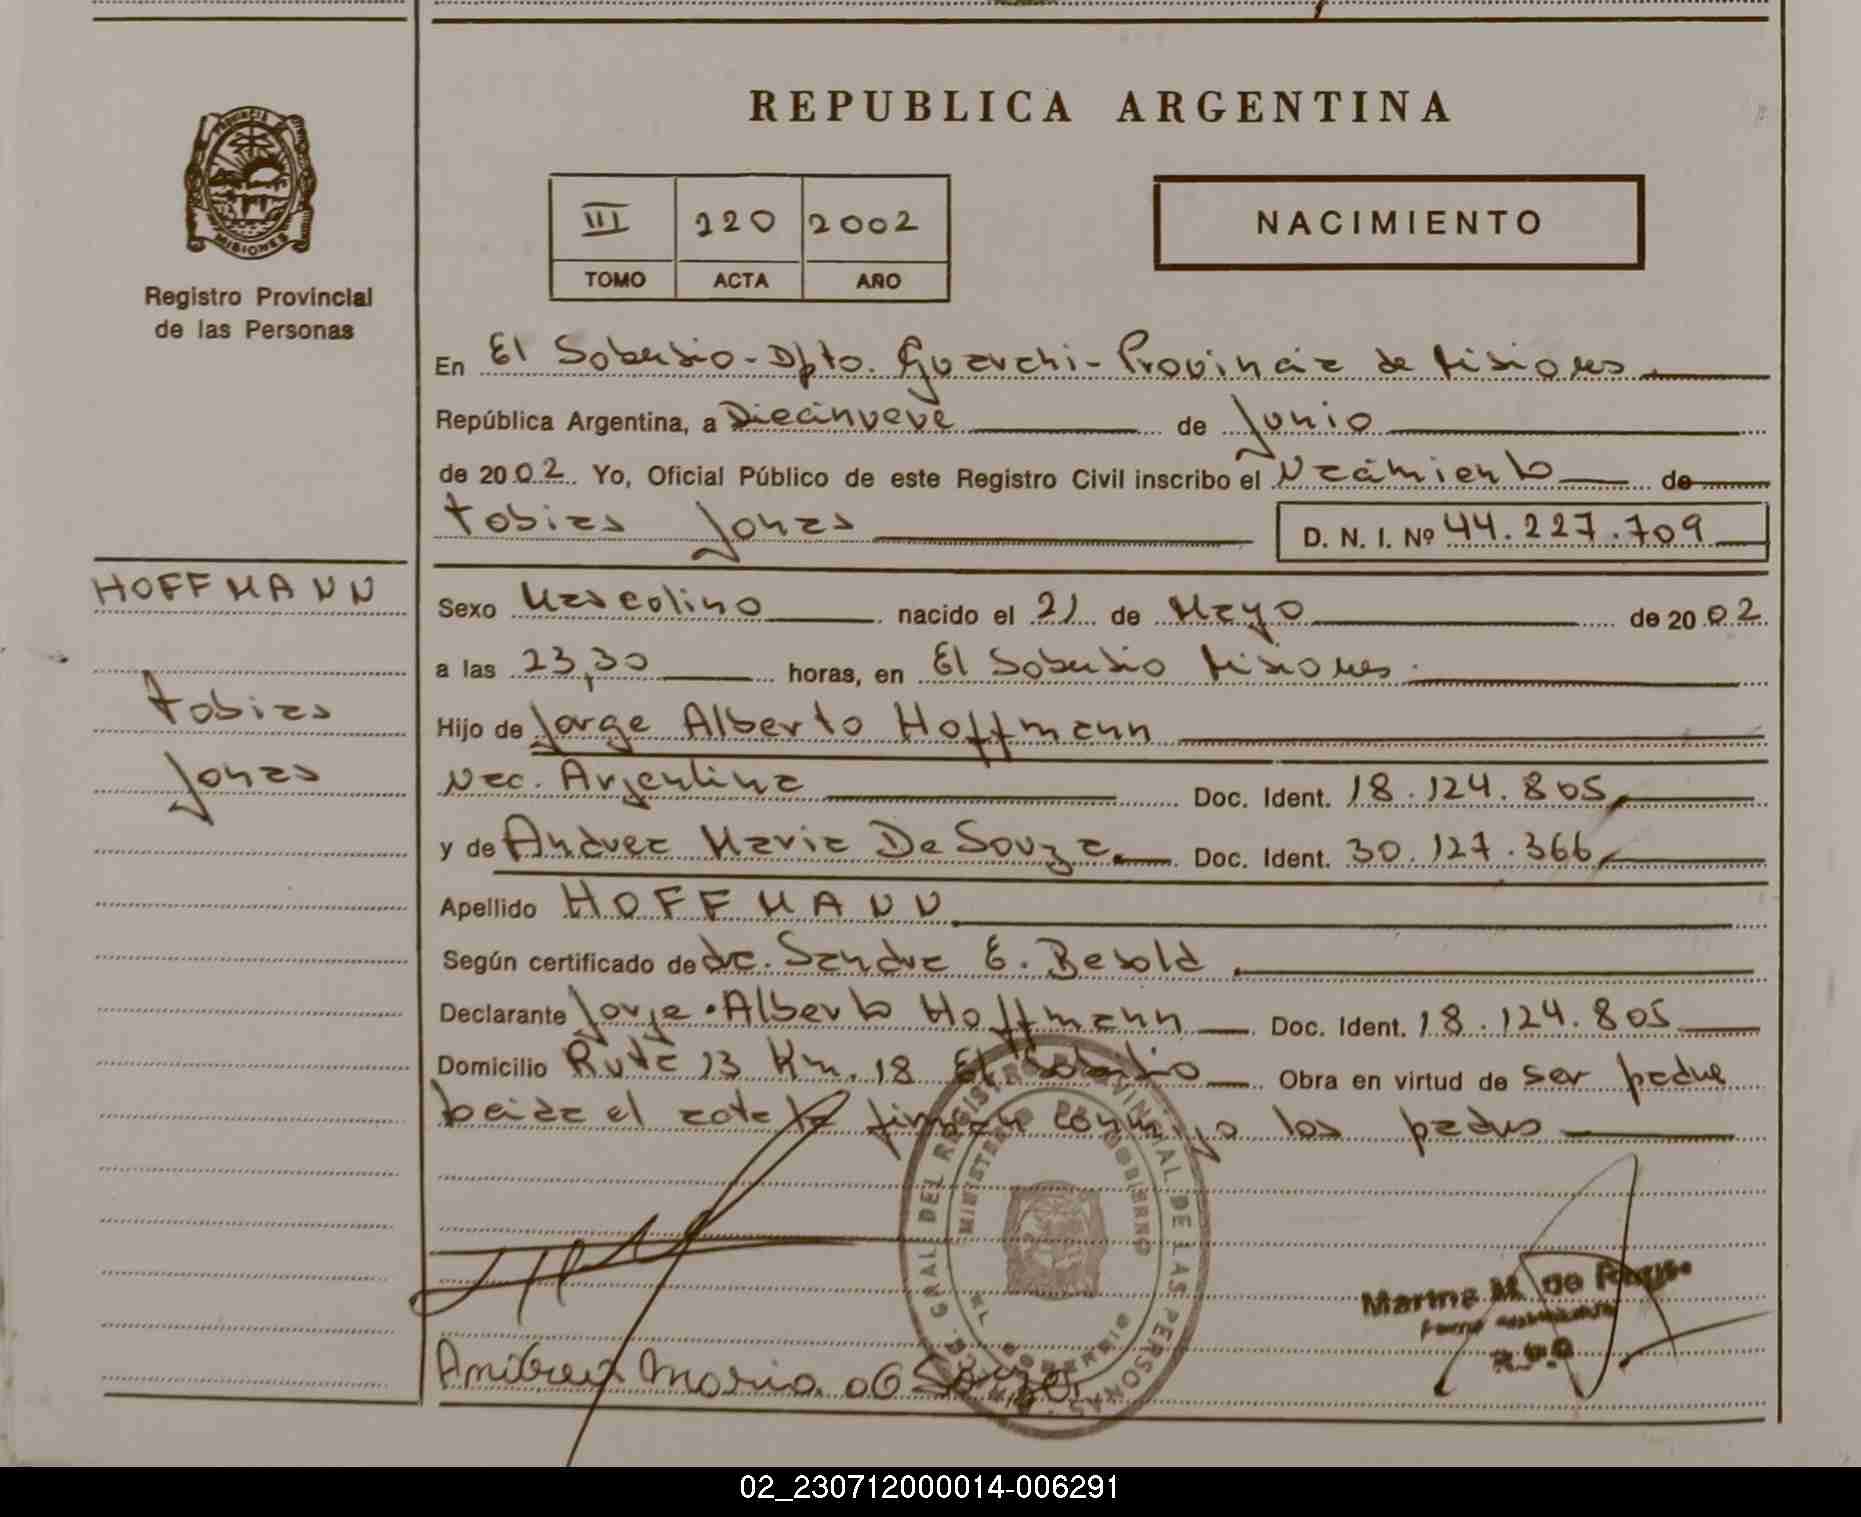 PROVINCIA DE
MISIONES
Registro Provincial
de las Personas
HOFFMANN
Tobias
Jonas
REPUBLICA ARGENTINA
III 220 2002
TOMO ACTA AÑO
NACIMIENTO
En El Soberbio - Dpto. Guarani - Provincia de Misiones
República Argentina, a Diecinueve de Junio
de 2002 Yo, Oficial Público de este Registro Civil inscribo el Nacimiento de
Tobias Jonas D. N. I. Nº 44.227.709
Sexo Masculino nacido el 21 de Mayo de 2002
a las 23,30 horas, en El Soberbio Misiones
Hijo de Jorge Alberto Hoffmann
Nac. Argentina Doc. Ident. 18.124.805
y de Andrea Maria De Souza Doc. Ident. 30.127.366
Apellido HOFFMANN
Según certificado de dra. Sandra E. Besold
Declarante Jorge Alberto Hoffmann Doc. Ident. 18.124.805
Domicilio Ruta 13 Km. 18 El Soberbio Obra en virtud de ser padre
leida el acta la firman conmigo los padres
DEL REGISTRO PROVINCIAL DE LAS PERSONAS
MINISTERIO DE GOBIERNO
EL SOBERBIO
Marina M. de
Andrea Maria de Souza
02_230712000014-006291